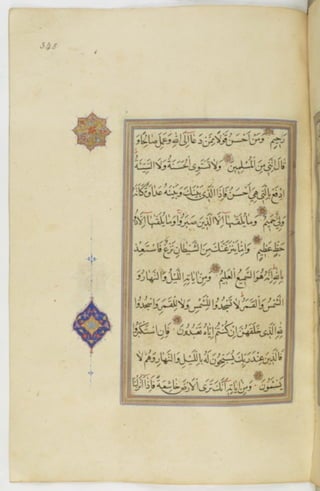 345
رَحِيمٍ وَمَنْ أَحْسَنُ قَوْلًا مِمَّنْ دَعَا إِلَى اللَّهِ وَعَمِلَ صَالِحًا وَ
قَالَ إِنَّنِي مِنَ الْمُسْلِمِينَ وَلَا تَسْتَوِي الْحَسَنَةُ وَلَا السَّيِّئَةُ
ادْفَعْ بِالَّتِي هِيَ أَحْسَنُ فَإِذَا الَّذِي بَيْنَكَ وَبَيْنَهُ عَدَاوَةٌ كَأَنَّهُ
وَلِيٌّ حَمِيمٌ وَمَا يُلَقَّاهَا إِلَّا الَّذِينَ صَبَرُوا وَمَا يُلَقَّاهَا إِلَّا ذُو
حَظٍّ عَظِيمٍ وَإِمَّا يَنْزَغَنَّكَ مِنَ الشَّيْطَانِ نَزْغٌ فَاسْتَعِذْ
بِاللَّهِ إِنَّهُ هُوَ السَّمِيعُ الْعَلِيمُ وَمِنْ آيَاتِهِ اللَّيْلُ وَالنَّهَارُ وَ
الشَّمْسُ وَالْقَمَرُ لَا تَسْجُدُوا لِلشَّمْسِ وَلَا لِلْقَمَرِ وَاسْجُدُوا
لِلَّهِ الَّذِي خَلَقَهُنَّ إِنْ كُنْتُمْ إِيَّاهُ تَعْبُدُونَ فَإِنِ اسْتَكْبَرُوا
فَالَّذِينَ عِنْدَ رَبِّكَ يُسَبِّحُونَ لَهُ بِاللَّيْلِ وَالنَّهَارِ وَهُمْ لَا
يَسْئَمُونَ وَمِنْ آيَاتِهِ أَنَّكَ تَرَى الْأَرْضَ خَاشِعَةً فَإِذَا أَنْزَلْنَا